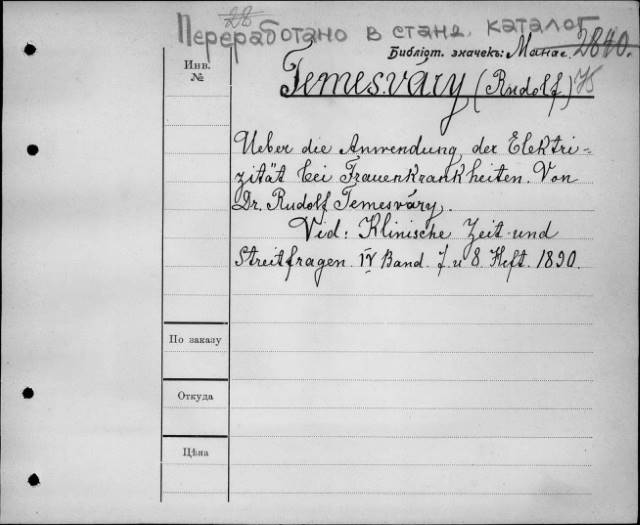 28
Переработано в станд. каталог
Библіот. значекъ: Манас. 2840.
Инв.
№
Temesváry (Rudolf)
Ueber die Anwendung der Elektri-
zität bei Frauenkrankheiten. Von
Dr. Rudolf Temesváry.
Vid: Klinische Zeit- und
Streitfragen. IV Band. 7. u 8. Heft. 1890.
По заказу
Откуда
Цѣна